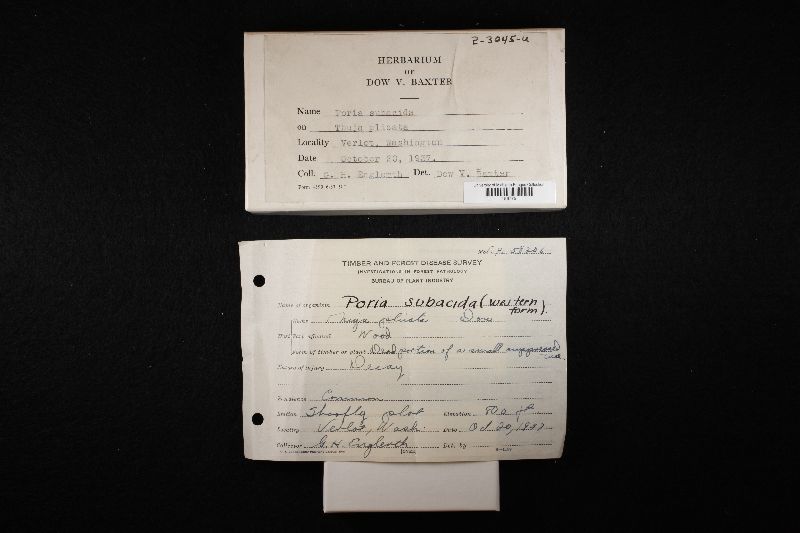 Z-3045-a
HERBARIUM
OF
DOW V. BAXTER
Name Poria subacida
on Thuja plicata
Locality Verlot, Washington
Date October 20, 1937.
Coll. G. H. Englerth Det. Dow V. Baxter
TIMBER AND FOREST DISEASE SURVEY
INVESTIGATIONS IN FOREST PATHOLOGY
BUREAU OF PLANT INDUSTRY
Name of organism Poria subacida (western form).
Name Thuja plicata Donn
Host Part affected Wood
Form of timber or plant Dead portion of a small suppressed
Nature of injury Decay
Prevalence Common
Station Shoofly plot Elevation
Locality Verlot, Wash. Date Oct 20, 1937
Collector G. H. Englerth Det. by